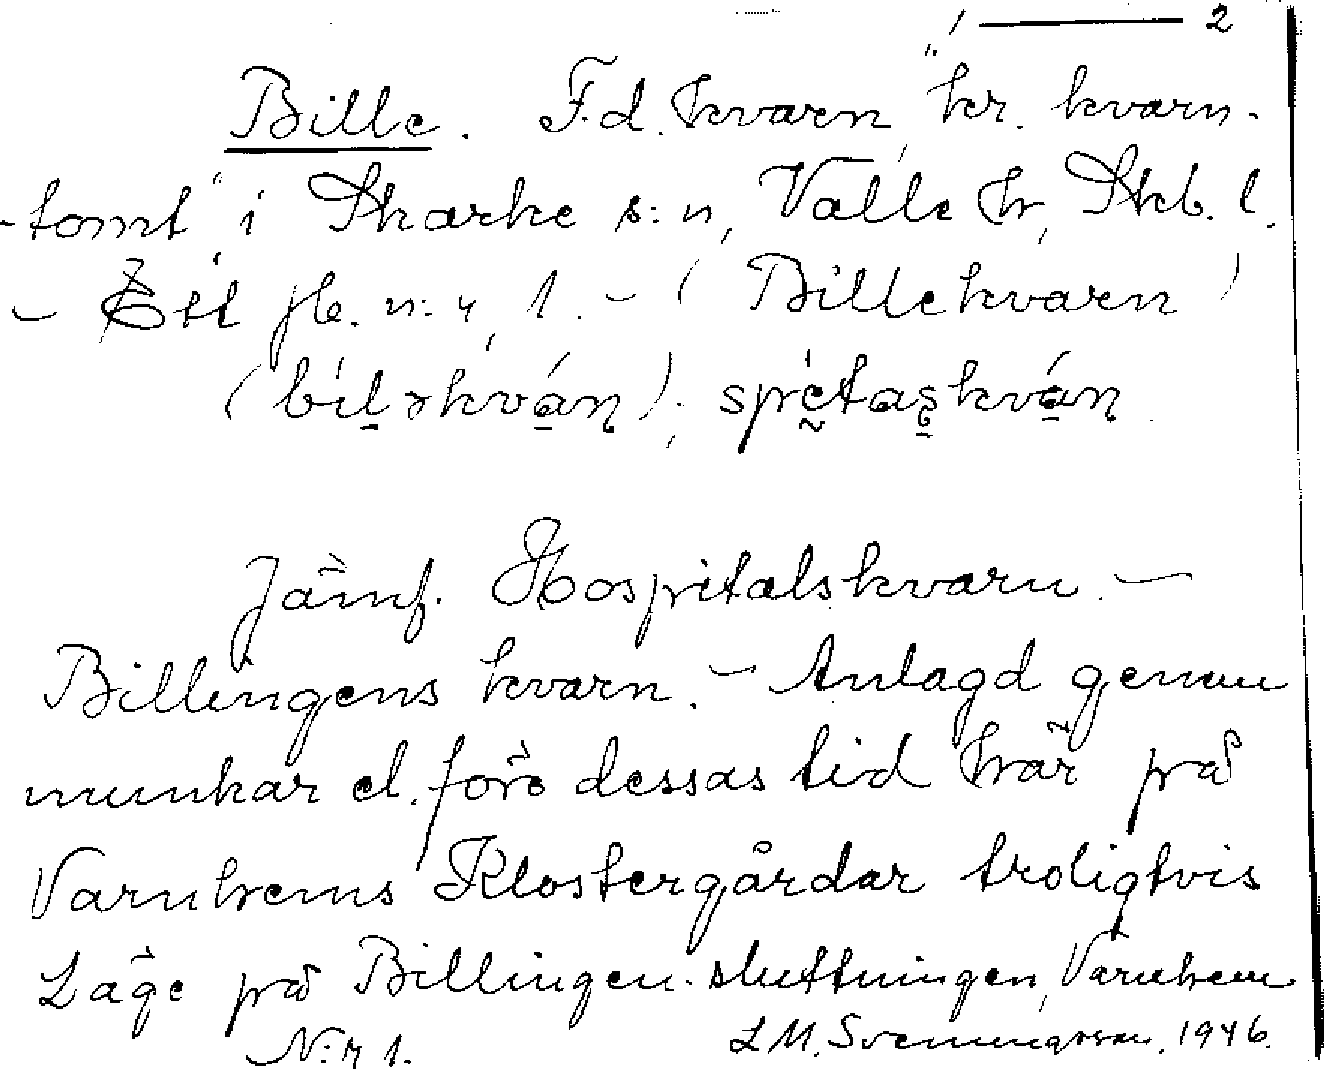 1 — 2
Bille. F.d. kvarn, "kr. kvarn-
-tomt" i Skarke s:n, Valle hr, Skb. l.
- Ett fle. n:r 1. - (Billekvarn)
(bil̠əkva̠ɳ); spretas̠kva̠ɳ.
Jämf. Hospitalskvarn. —
Billingens kvarn. - Anlagd genom
munkar el. före dessas tid här på
Varnhems Klostergårdar troligtvis
Läge på Billingen-sluttningen, Varnhem
N:r 1.
L M. Svenungsson. 1946.